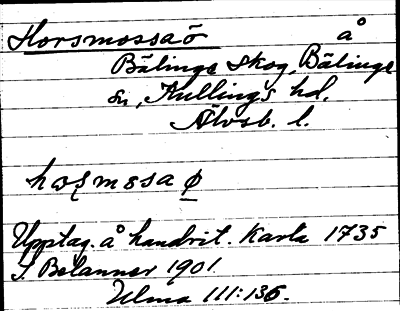 Horsmossaö å
Bälinge skog, Bälinge
sn, Kullings hd.
Älvsb. l.
hoʂmosa ø̲
Upptag. å handrit. Karta 1735
S. Belanner 1901.
Ulma 111:136.